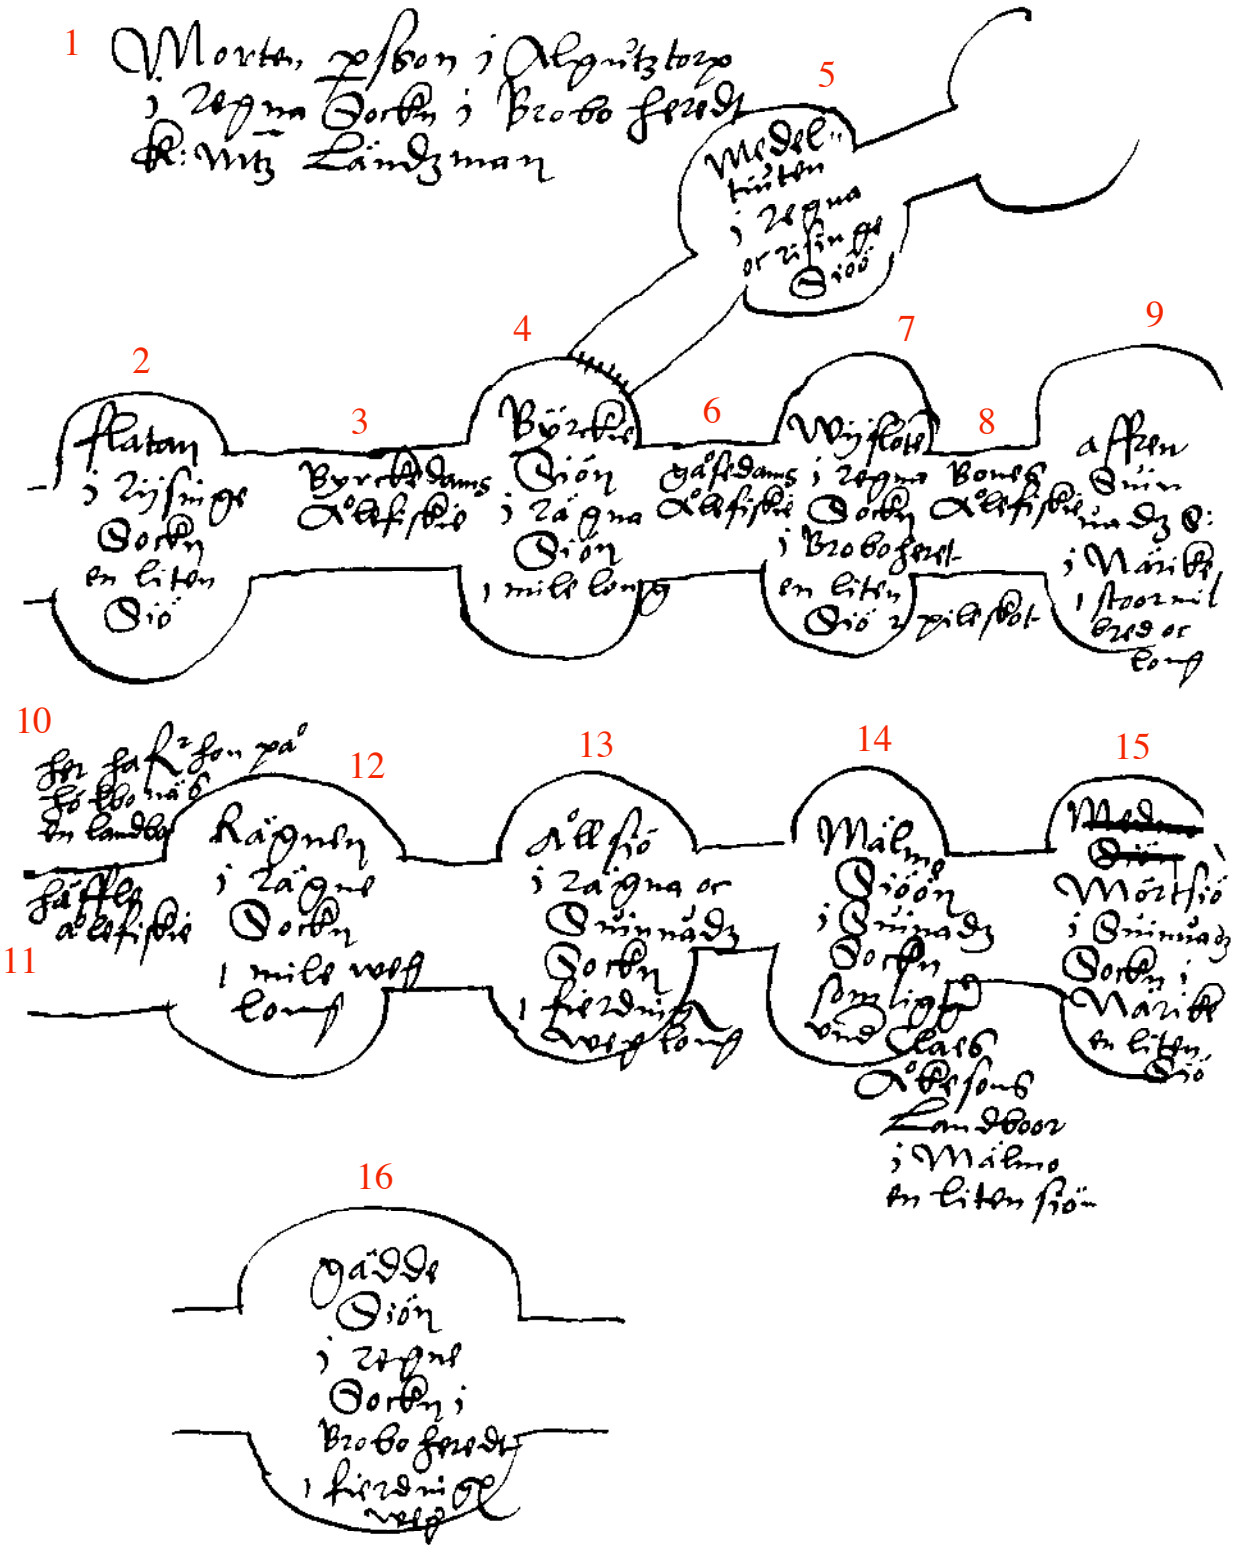 1
Morten persson i Algutztorp
i Regna Sockn i Brobo heredt
k: Mtz Ländzman
5
Medel-
tuuten
i Regna
oc risinge
Siöö
2
flatan
i Rijsinge
Sockn
en liten
Siö
3
Byrckedams
Ålefiskie
4
Byrckie
Siön
i Rägna
Siön
1 mile long
6
gåsedams
Ålefiskie
7
Wijflote
i Regna
Sockn
i Broboheret
en liten
Siö 2 pileskot
8
Bones
Ålefiskie
9
affren
Suin
uadz S:
i Närike
1 stoor mil
bred oc
long
10
her hafr hon på
hökbonäs
en landbo
11
häffle
ålefiskie
12
Rägnen
i Rägne
Sockn
1 mile weg
long
13
Ållsiö
i Rägna oc
Suinnadz
Sockn
1 fierding
weg long
14
Mälmo
Siöön
i Suinadz
Sockn
som ligger
vnd Claes
Åkesons
Landboor
i Mälmo
en liten siön
15
Siön
Mörtsiö
i Suinuadz
Sockn i
Närike
en liten
Siö
16
gädde
Siön
i Regne
Sockn i
Brobo heredt
1 fierding
weg